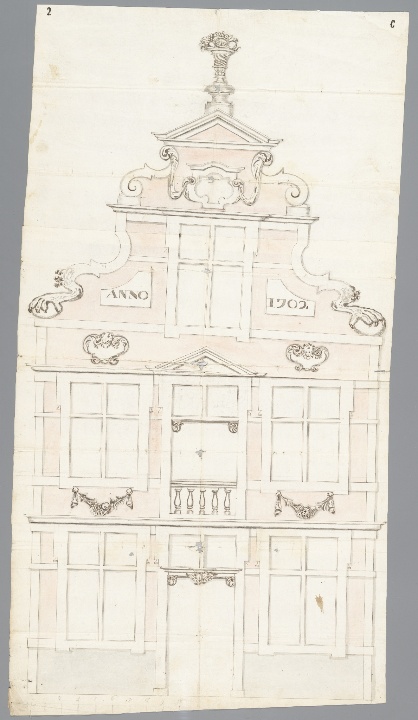 2
C
ANNO
1702.